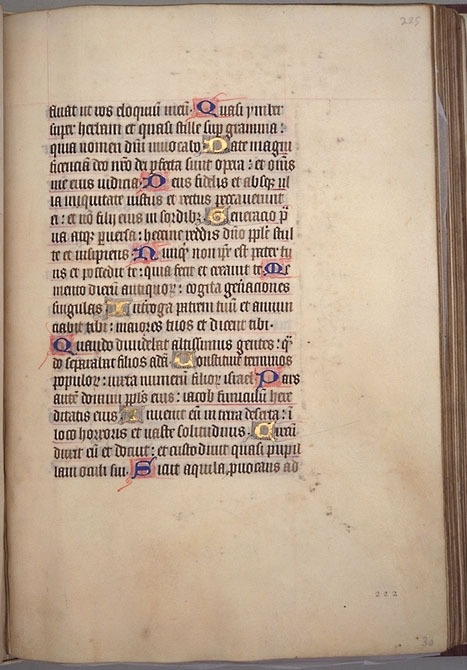 225
fluat ut ros eloquiū meū. Quasi ymber
super herbam et quasi stille sup gramina:
quia nomen dn̄i inuocabo. Date magni
ficenciam deo nr̄o dei pfecta sunt opera: et om̄s
uie eius iudicia. Deus fidelis et absq; ul
la iniquitate iustus et rectus peccauerunt
ei: et nō filij eius in sordibz. Generacō p̄
ua atq; puersa: heccine reddis dn̄o pple stul
te et insipiens. Nunq̄ non ip̄e est pater tu
us et possedit te: quia fecit et creauit te. Me
mento dierū antiquoꝝ: cogita gen̄aciones
singulas. Interroga patrem tuū et annun
ciabit tibi: maiores tuos et dicent tibi.
Quando diuidebat altissimus gentes: qn̄
do separabat filios adā. Constituit terminos
populoꝝ: iuxta numerū filioꝝ israel. Pars
autē domini pplūs eius: iacob funiculus here
ditatis eius. Inuenit eū in terra deserta: ī
loco horroris et uaste solitudinis. Circū
duxit eū et docuit: et custodiuit quasi pupil
lam oculi sui. Sicut aquila puocans ad
222
30